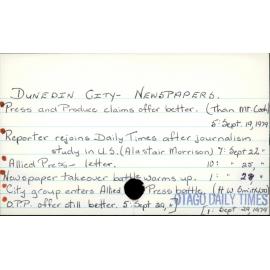 DUNEDIN CITY - NEWSPAPERS.
Press and Produce claims offer better. (Than Mt. Cook)
5: Sept. 19, 1979
Reporter rejoins Daily Times after journalism
study in U.S. (Alastair Morrison) 7: Sept 22 "
Allied Press - letter. 10: " 25, "
Newspaper takeover battle warms up. 1: " 28 "
City group enters Allied Press battle. (H W Smith
OTAGO DAILY TIMES
D.P.P. offer still better. 5: Sept 29, "
1: Sept 29, 1979